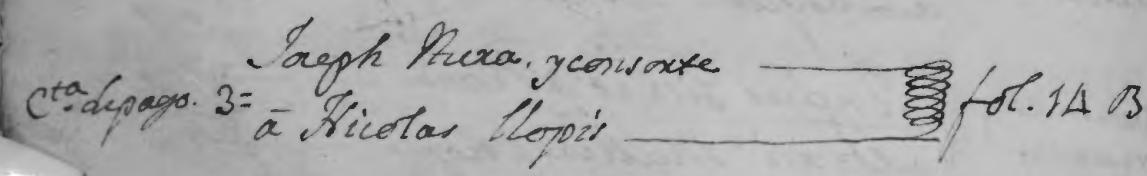 Joseph Mira, y consorte
Cta. de pago. 3=
â Nicolas Llopis
fol. 14 B